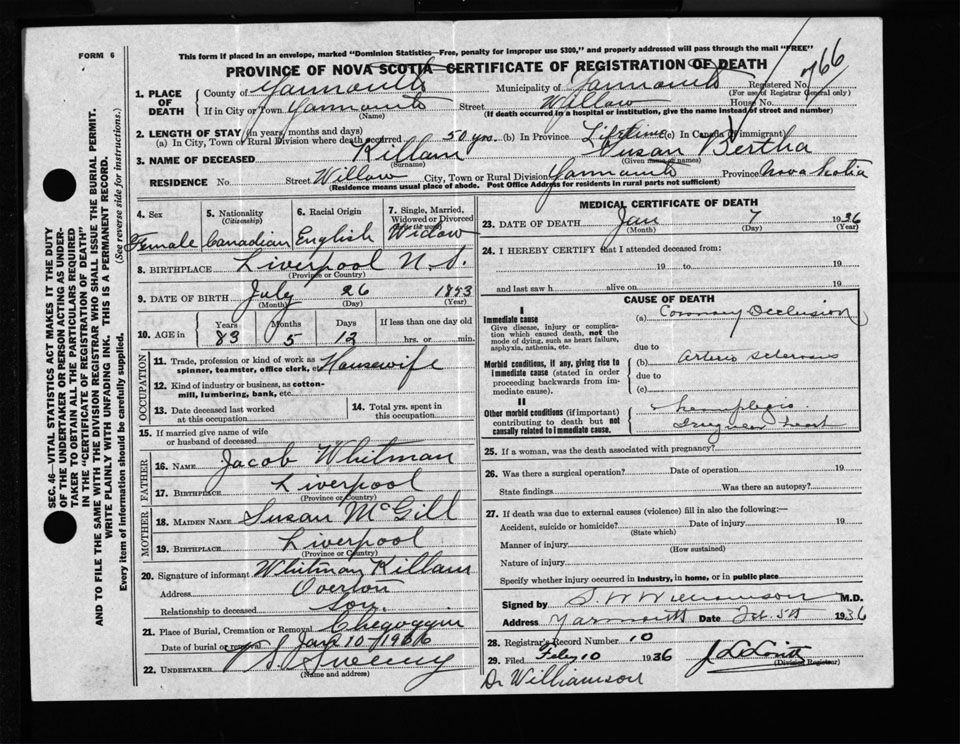 FORM 6
This form if placed in an envelope, marked "Dominion Statistics—Free, penalty for improper use $300," and properly addressed will pass through the mail "FREE"
PROVINCE OF NOVA SCOTIA CERTIFICATE OF REGISTRATION OF DEATH
766
1. PLACE OF DEATH
County of Yarmouth Municipality of Yarmouth Registered No.
(For use of Registrar General only)
If in City or Town Yarmouth Street Willow House No.
(Name) (If death occurred in a hospital or institution, give the name instead of street and number)
2. LENGTH OF STAY (in years, months and days)
(a) In City, Town or Rural Division where death occurred 50 yrs. (b) In Province Lifetime (c) In Canada (if immigrant)
3. NAME OF DECEASED Killam Susan Bertha
(Surname) (Given name or names)
RESIDENCE No. Street Willow City, Town or Rural Division Yarmouth Province Nova Scotia
(Residence means usual place of abode. Post Office Address for residents in rural parts not sufficient)
4. Sex
Female
5. Nationality (Citizenship)
Canadian
6. Racial Origin
English
7. Single, Married, Widowed or Divorced
Widow
8. BIRTHPLACE Liverpool N.S.
(Province or Country)
9. DATE OF BIRTH July 26 1853
(Month) (Day) (Year)
10. AGE in Years Months Days If less than one day old
83 5 12 hrs. or min.
OCCUPATION
11. Trade, profession or kind of work as spinner, teamster, office clerk, etc. Housewife
12. Kind of industry or business, as cotton-mill, lumbering, bank, etc.
13. Date deceased last worked at this occupation
14. Total yrs. spent in this occupation
15. If married give name of wife or husband of deceased
FATHER
16. NAME Jacob Whitman
17. BIRTHPLACE Liverpool
(Province or Country)
MOTHER
18. MAIDEN NAME Susan McGill
19. BIRTHPLACE Liverpool
(Province or Country)
20. Signature of informant Whitman Killam
Address Overton
Relationship to deceased Son.
21. Place of Burial, Cremation or Removal Chegoggin
Date of burial or removal Jan 10 - 1936
22. UNDERTAKER Sweeny
(Name and address)
MEDICAL CERTIFICATE OF DEATH
23. DATE OF DEATH Jan 7 1936
(Month) (Day) (Year)
24. I HEREBY CERTIFY that I attended deceased from:
19 to 19
and last saw h alive on 19
CAUSE OF DEATH
I
Immediate cause
Give disease, injury or complication which caused death, not the mode of dying, such as heart failure, asphyxia, asthenia, etc.
(a) Coronary Occlusion
due to
Morbid conditions, if any, giving rise to immediate cause (stated in order proceeding backwards from immediate cause).
(b) Arterio Sclerosis
due to
(c)
II
Other morbid conditions (if important) contributing to death but not causally related to immediate cause.
hemiplegia
heart
25. If a woman, was the death associated with pregnancy?
26. Was there a surgical operation? Date of operation 19
State findings Was there an autopsy?
27. If death was due to external causes (violence) fill in also the following:—
Accident, suicide or homicide? Date of injury 19
(State which)
Manner of injury
(How sustained)
Nature of injury
Specify whether injury occurred in industry, in home, or in public place
Signed by S. W Williamson M.D.
Address Yarmouth Date Feb. 5th 1936
28. Registrar's Record Number 10
29. Filed Feby 10 1936
(Division Registrar)
Dr Williamson
SEC. 46—VITAL STATISTICS ACT MAKES IT THE DUTY
OF THE UNDERTAKER OR PERSON ACTING AS UNDER-
TAKER TO OBTAIN ALL THE PARTICULARS REQUIRED
IN THE "CERTIFICATE OF REGISTRATION OF DEATH"
AND TO FILE THE SAME WITH THE DIVISION REGISTRAR WHO SHALL ISSUE THE BURIAL PERMIT.
WRITE PLAINLY WITH UNFADING INK. THIS IS A PERMANENT RECORD.
Every item of information should be carefully supplied. (See reverse side for instructions.)